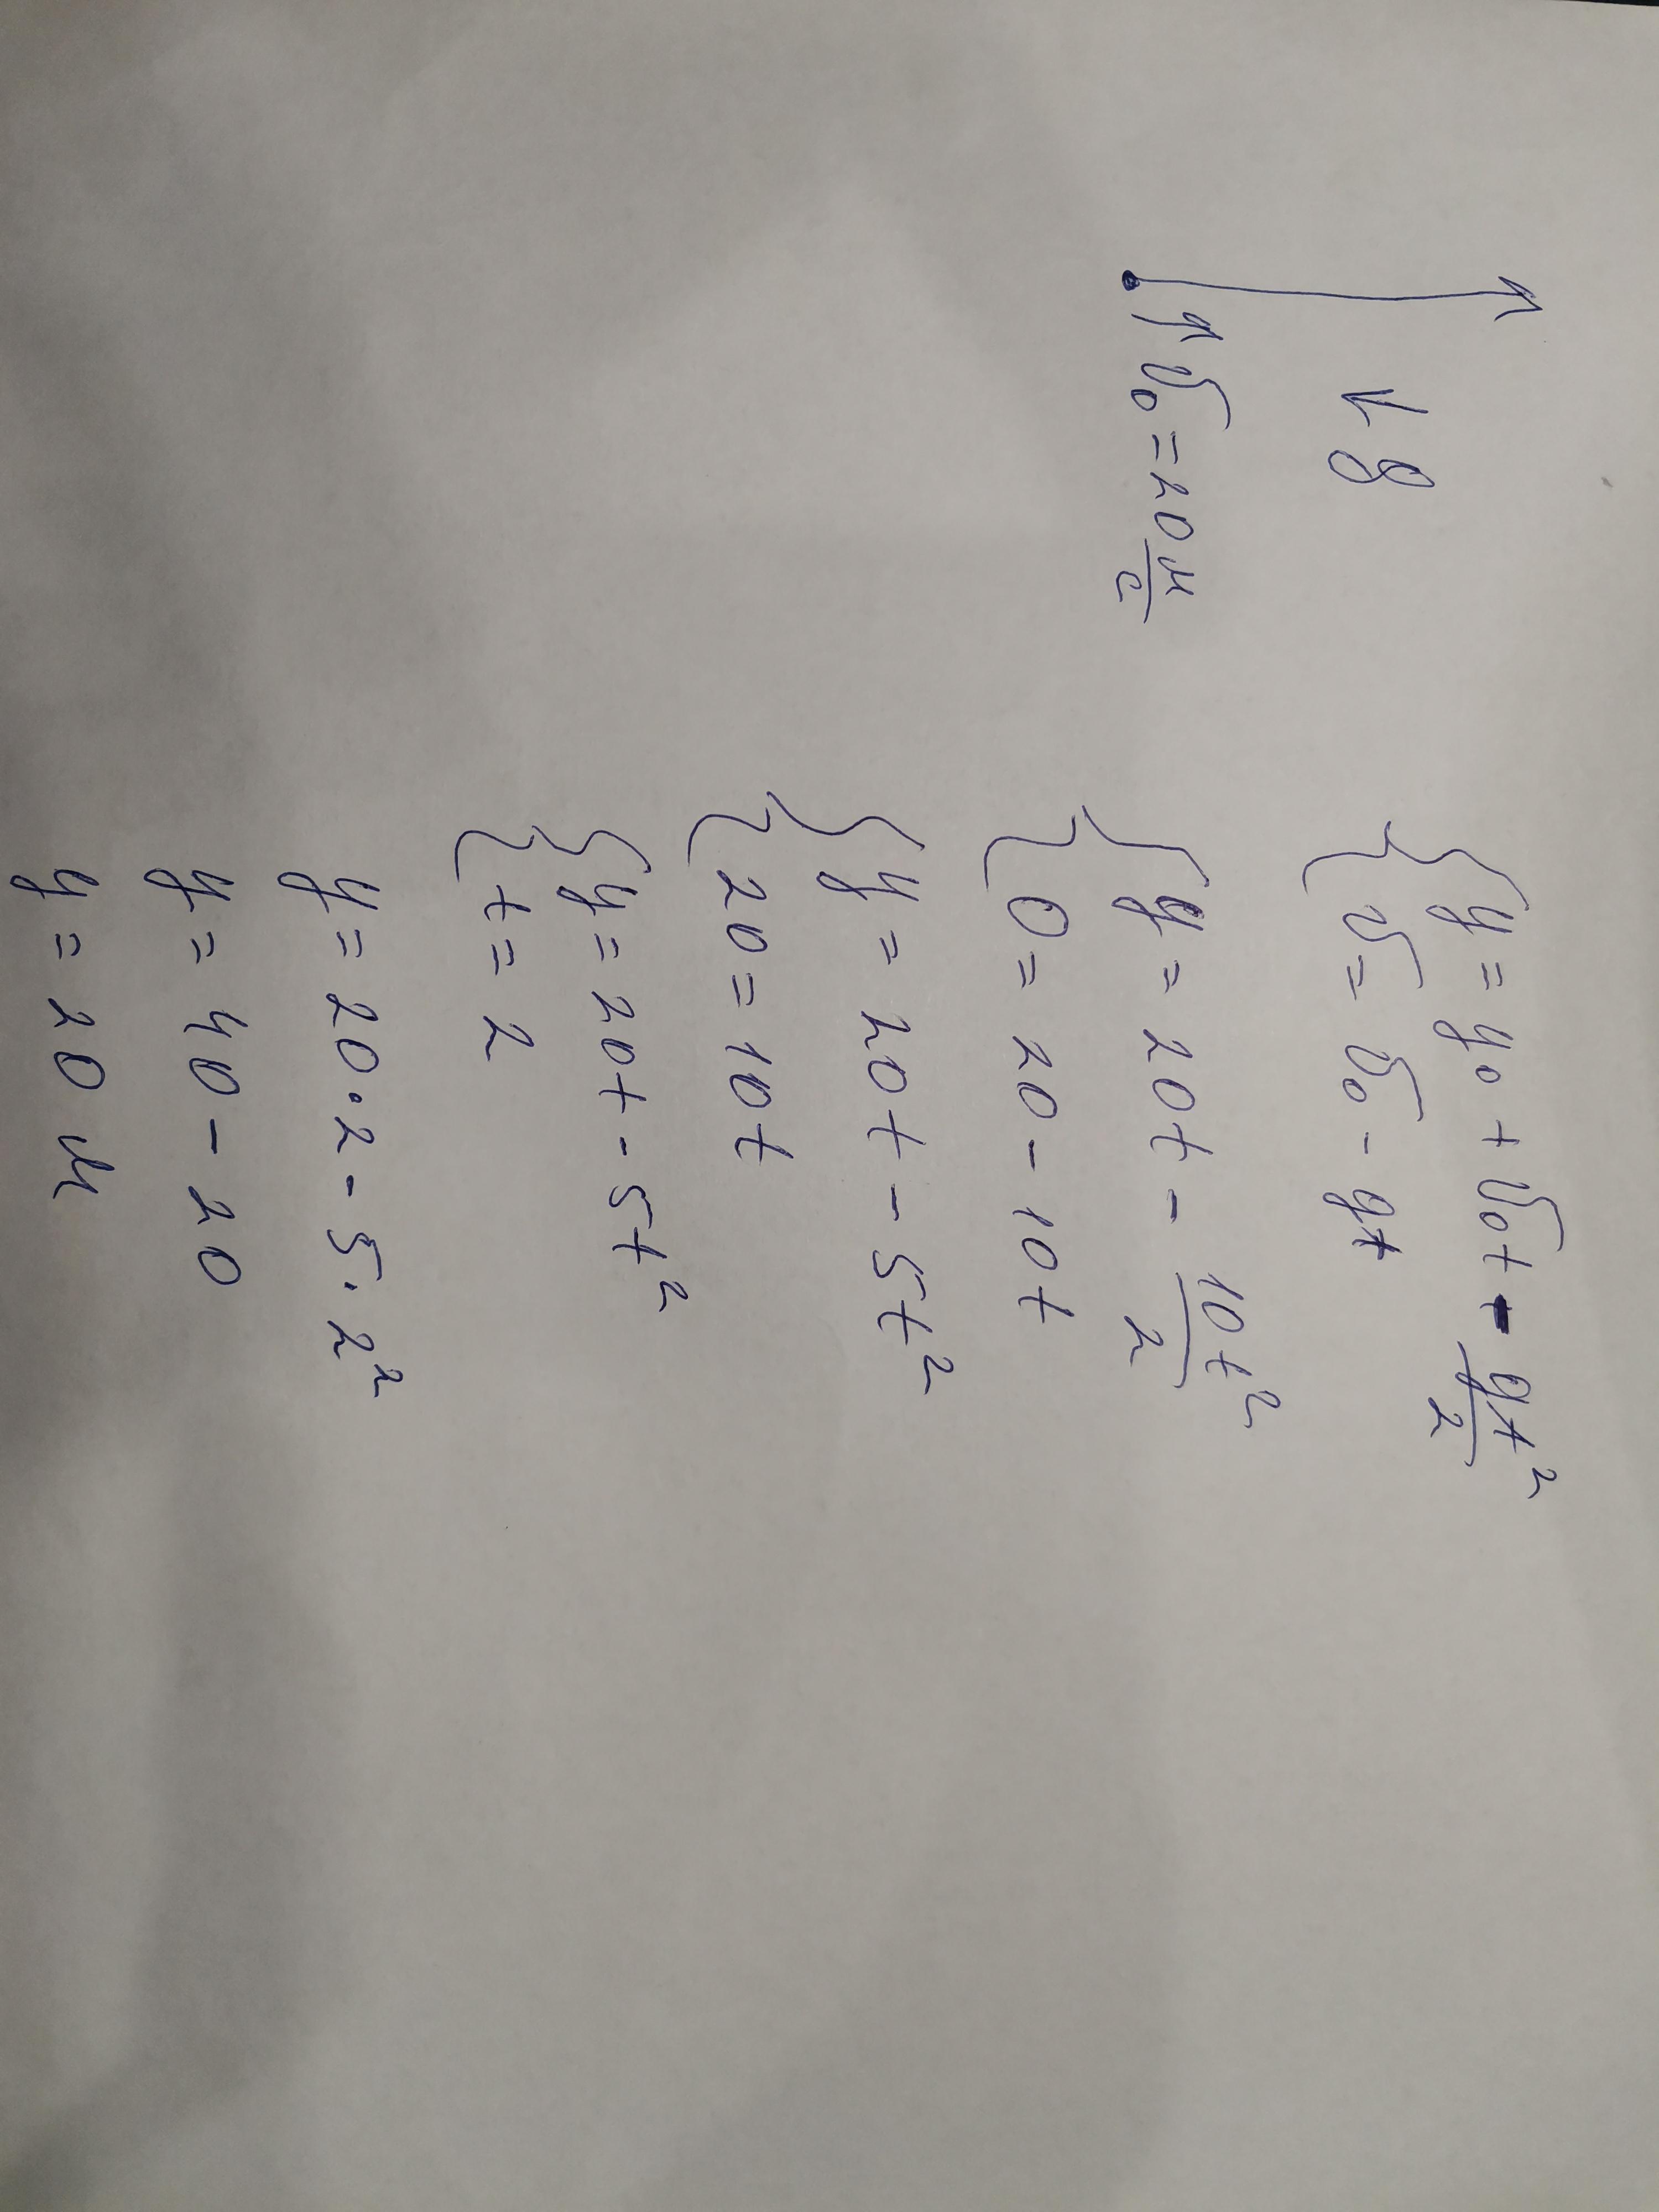 g
v₀ = 20 м/с
y = y₀ + v₀t - gt²/2
v = v₀ - gt
y = 20t - 10t²/2
0 = 20 - 10t
y = 20t - 5t²
20 = 10t
y = 20t - 5t²
t = 2
y = 20·2 - 5·2²
y = 40 - 20
y = 20 м